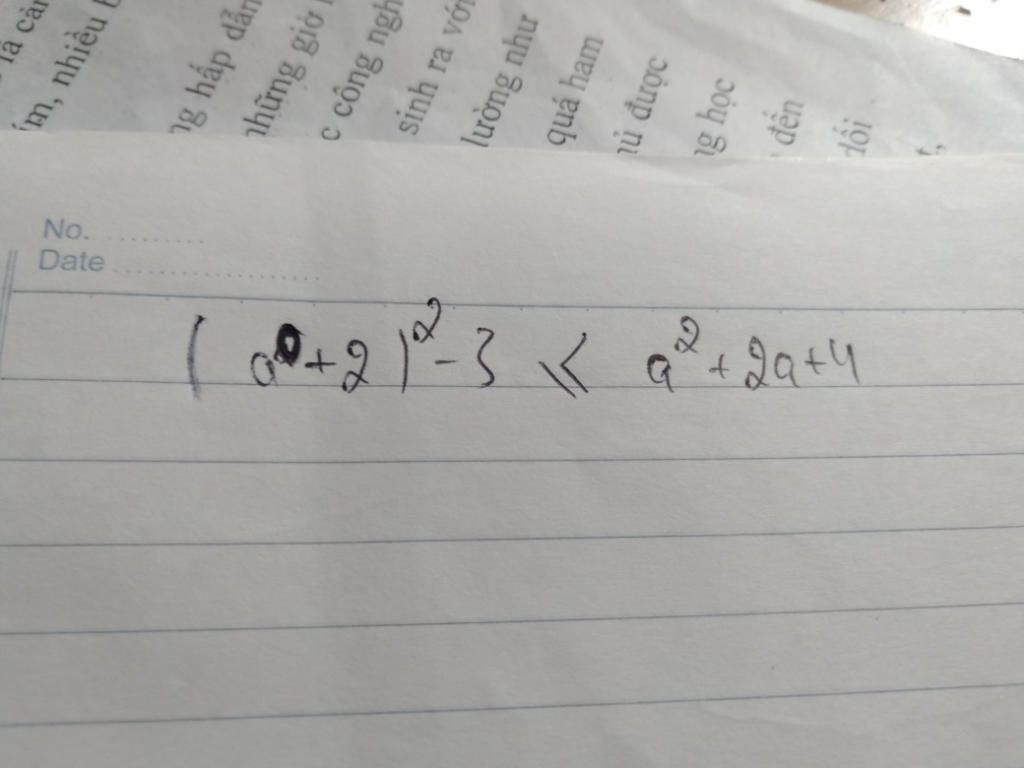 là càn
ím, nhiều b
ng hấp dẫn
những giờ
c công ngh
sinh ra với
lường như
quá ham
hủ được
ng học
đến
dối
No. ..........
Date ..................
(a + 2)² - 3 ⩽ a² + 2a + 4